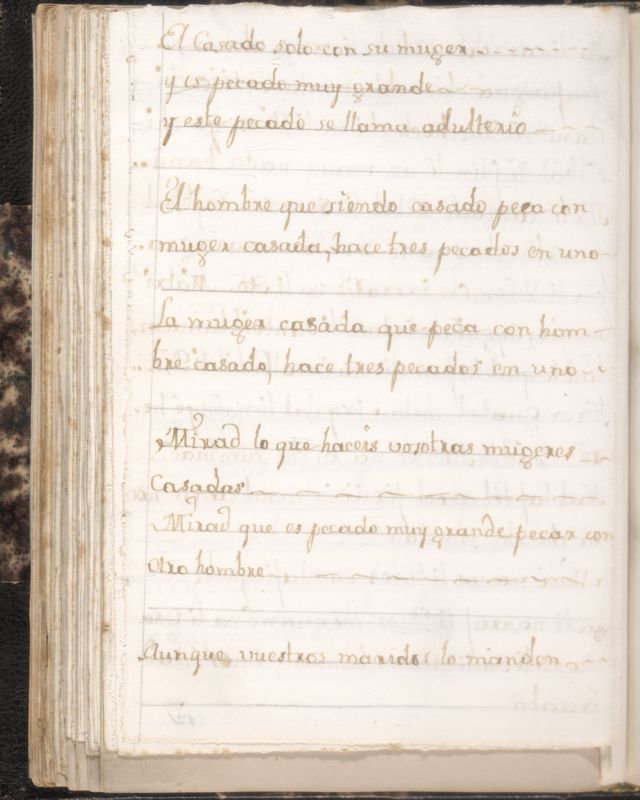 El Casado solo con su muger,
y es pecado muy grande
y este pecado se llama adulterio
El hombre que siendo casado peca con
muger casada, hace tres pecados en uno
La muger casada que peca con hom-
bre casado, hace tres pecados en uno
Mirad lo que haceis vosotras mugeres
Casadas!
Mirad que es pecado muy grande pecar con
otro hombre
Aunque vuestros maridos lo manden